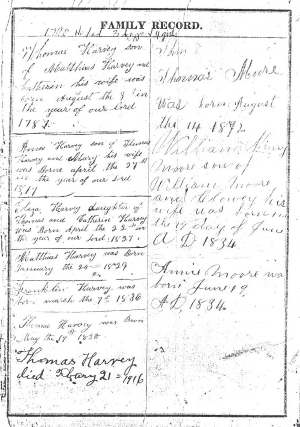 FAMILY RECORD.
Thomas Harvey son
of Matthias Harvey and
his wife was
born August the 9th in
the year of our lord
1787.
Amos Harvey son of Thomas
Harvey and Mary his wife
was Borne april the 27th
in the year of our Lord
1811
Harvey daughter of
Thomas and Catherin Harvey
was Born April the 22
the year of our lord: 1827.
Matthias Harvey was Born
January the 20 1829
Franklin Harvey was
born march the 7th 1836
Thomas Harvey was Born
May the 19th 1838
Thomas Harvey
died 21 = 1916
Thomas Moore
was borne August
the 14 1872
William
Moore son of
William Moore
and his
wife was born in
the 19 day of June
A D 1834
Annie Moore was
born June 19
AD, 1834.